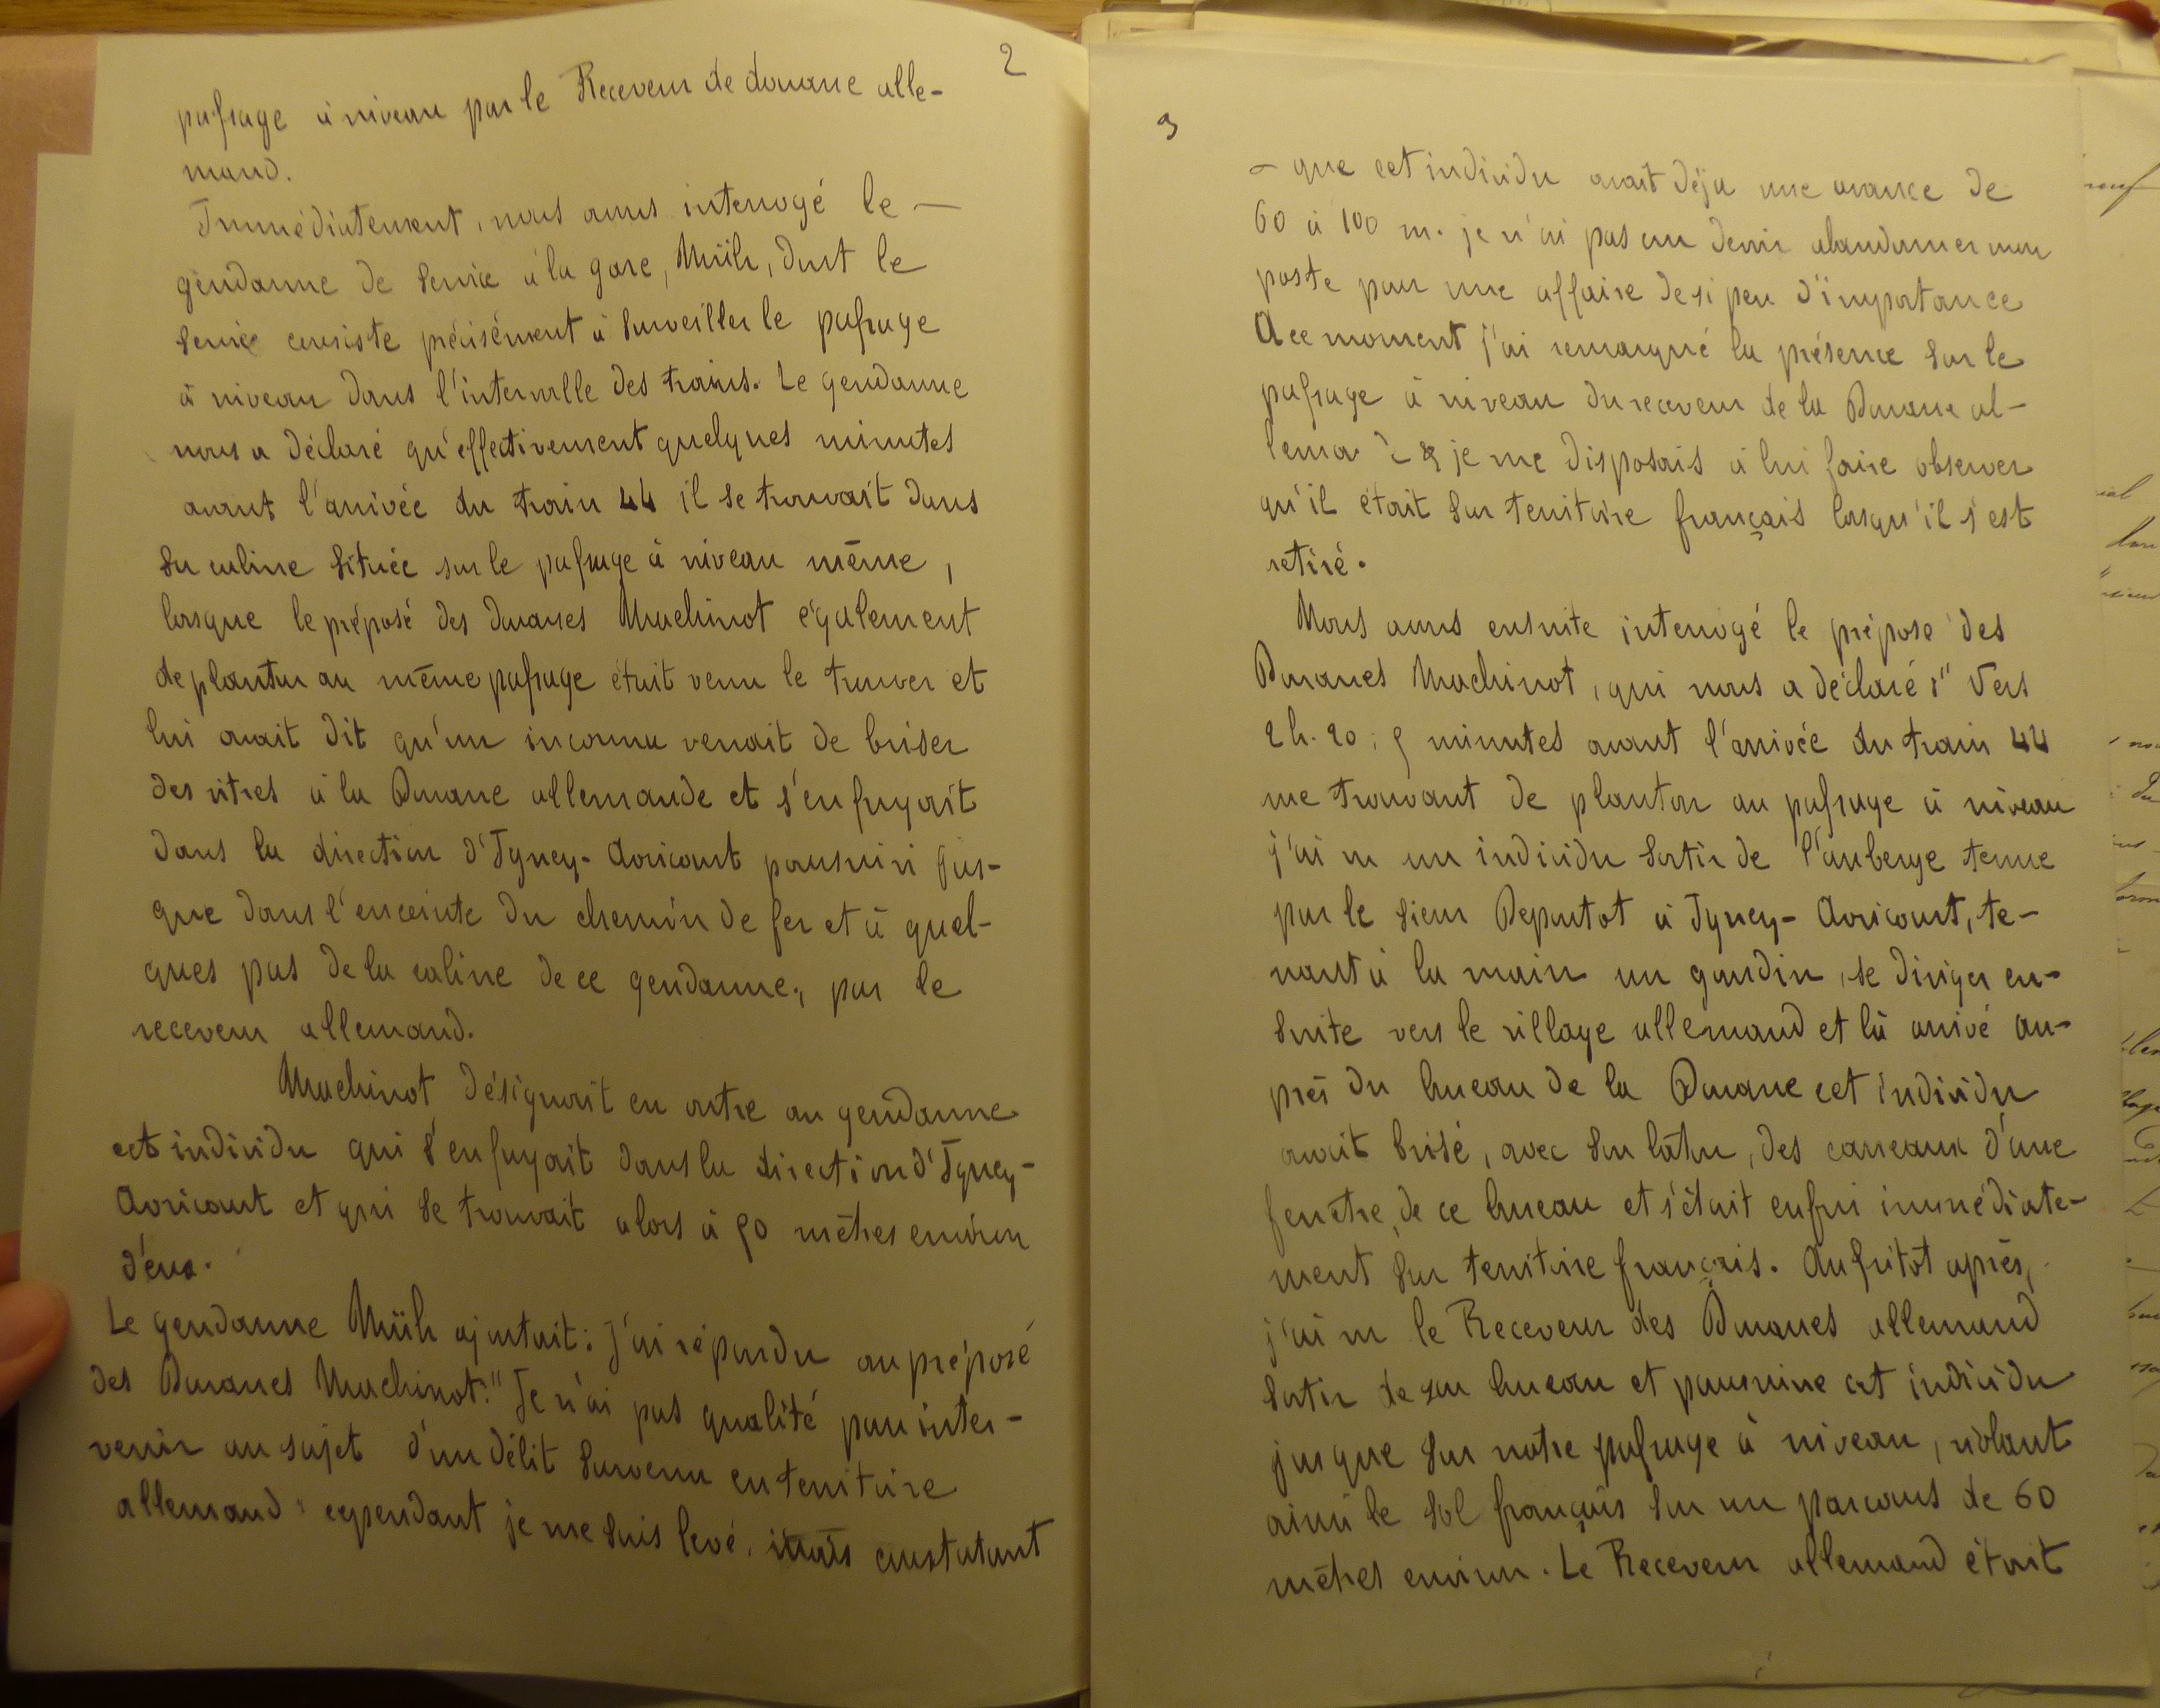 2
passage à niveau par le Receveur de douane alle-
mand.
Immédiatement, nous avons interrogé le —
gendarme de service à la gare, Müih, dont le
service consiste précisément à surveiller le passage
à niveau dans l'intervalle des trains. Le gendarme
nous a déclaré qu'effectivement quelques minutes
avant l'arrivée du train 44 il se trouvait dans
sa cabine située sur le passage à niveau même,
lorsque le préposé des douanes Machinot également
de planton au même passage était venu le trouver et
lui avait dit qu'un inconnu venait de briser
des vitres à la Douane allemande et s'enfuyait
dans la direction d'Igney-Avricourt poursuivi jus-
que dans l'enceinte du chemin de fer et à quel-
ques pas de la cabine de ce gendarme, par le
receveur allemand.
Machinot désignait en outre au gendarme
cet individu qui s'enfuyait dans la direction d'Igney-
Avricourt et qui se trouvait alors à 50 mètres environ
d'eux.
Le gendarme Müih ajoutait : J'ai répondu au préposé
des Douanes Machinot : " Je n'ai pas qualité pour inter-
venir au sujet d'un délit survenu en territoire
allemand " cependant je me suis levé. mais constatant
3
— que cet individu avait déjà une avance de
60 à 100 m. je n'ai pas cru devoir abandonner mon
poste pour une affaire de si peu d'importance
A ce moment j'ai remarqué la présence sur le
passage à niveau du receveur de la Douane al-
lemande & je me disposais à lui faire observer
qu'il était sur territoire français lorsqu'il s'est
retiré.
Nous avons ensuite interrogé le préposé des
Douanes Machinot, qui nous a déclaré : " Vers
2 h. 20, 5 minutes avant l'arrivée du train 44
me trouvant de planton au passage à niveau
j'ai vu un individu sortir de l'auberge tenue
par le sieur Deputot à Igney-Avricourt, te-
nant à la main un gourdin, se diriger en-
suite vers le village allemand et là arrivé au-
près du bureau de la Douane cet individu
avait brisé, avec son bâton, des carreaux d'une
fenêtre de ce bureau et s'était enfui immédiate-
ment sur territoire français. Aussitôt après,
j'ai vu le Receveur des Douanes allemand
sortir de son bureau et poursuivre cet individu
jusque sur notre passage à niveau, violant
ainsi le sol français sur un parcours de 60
mètres environ. Le Receveur allemand était